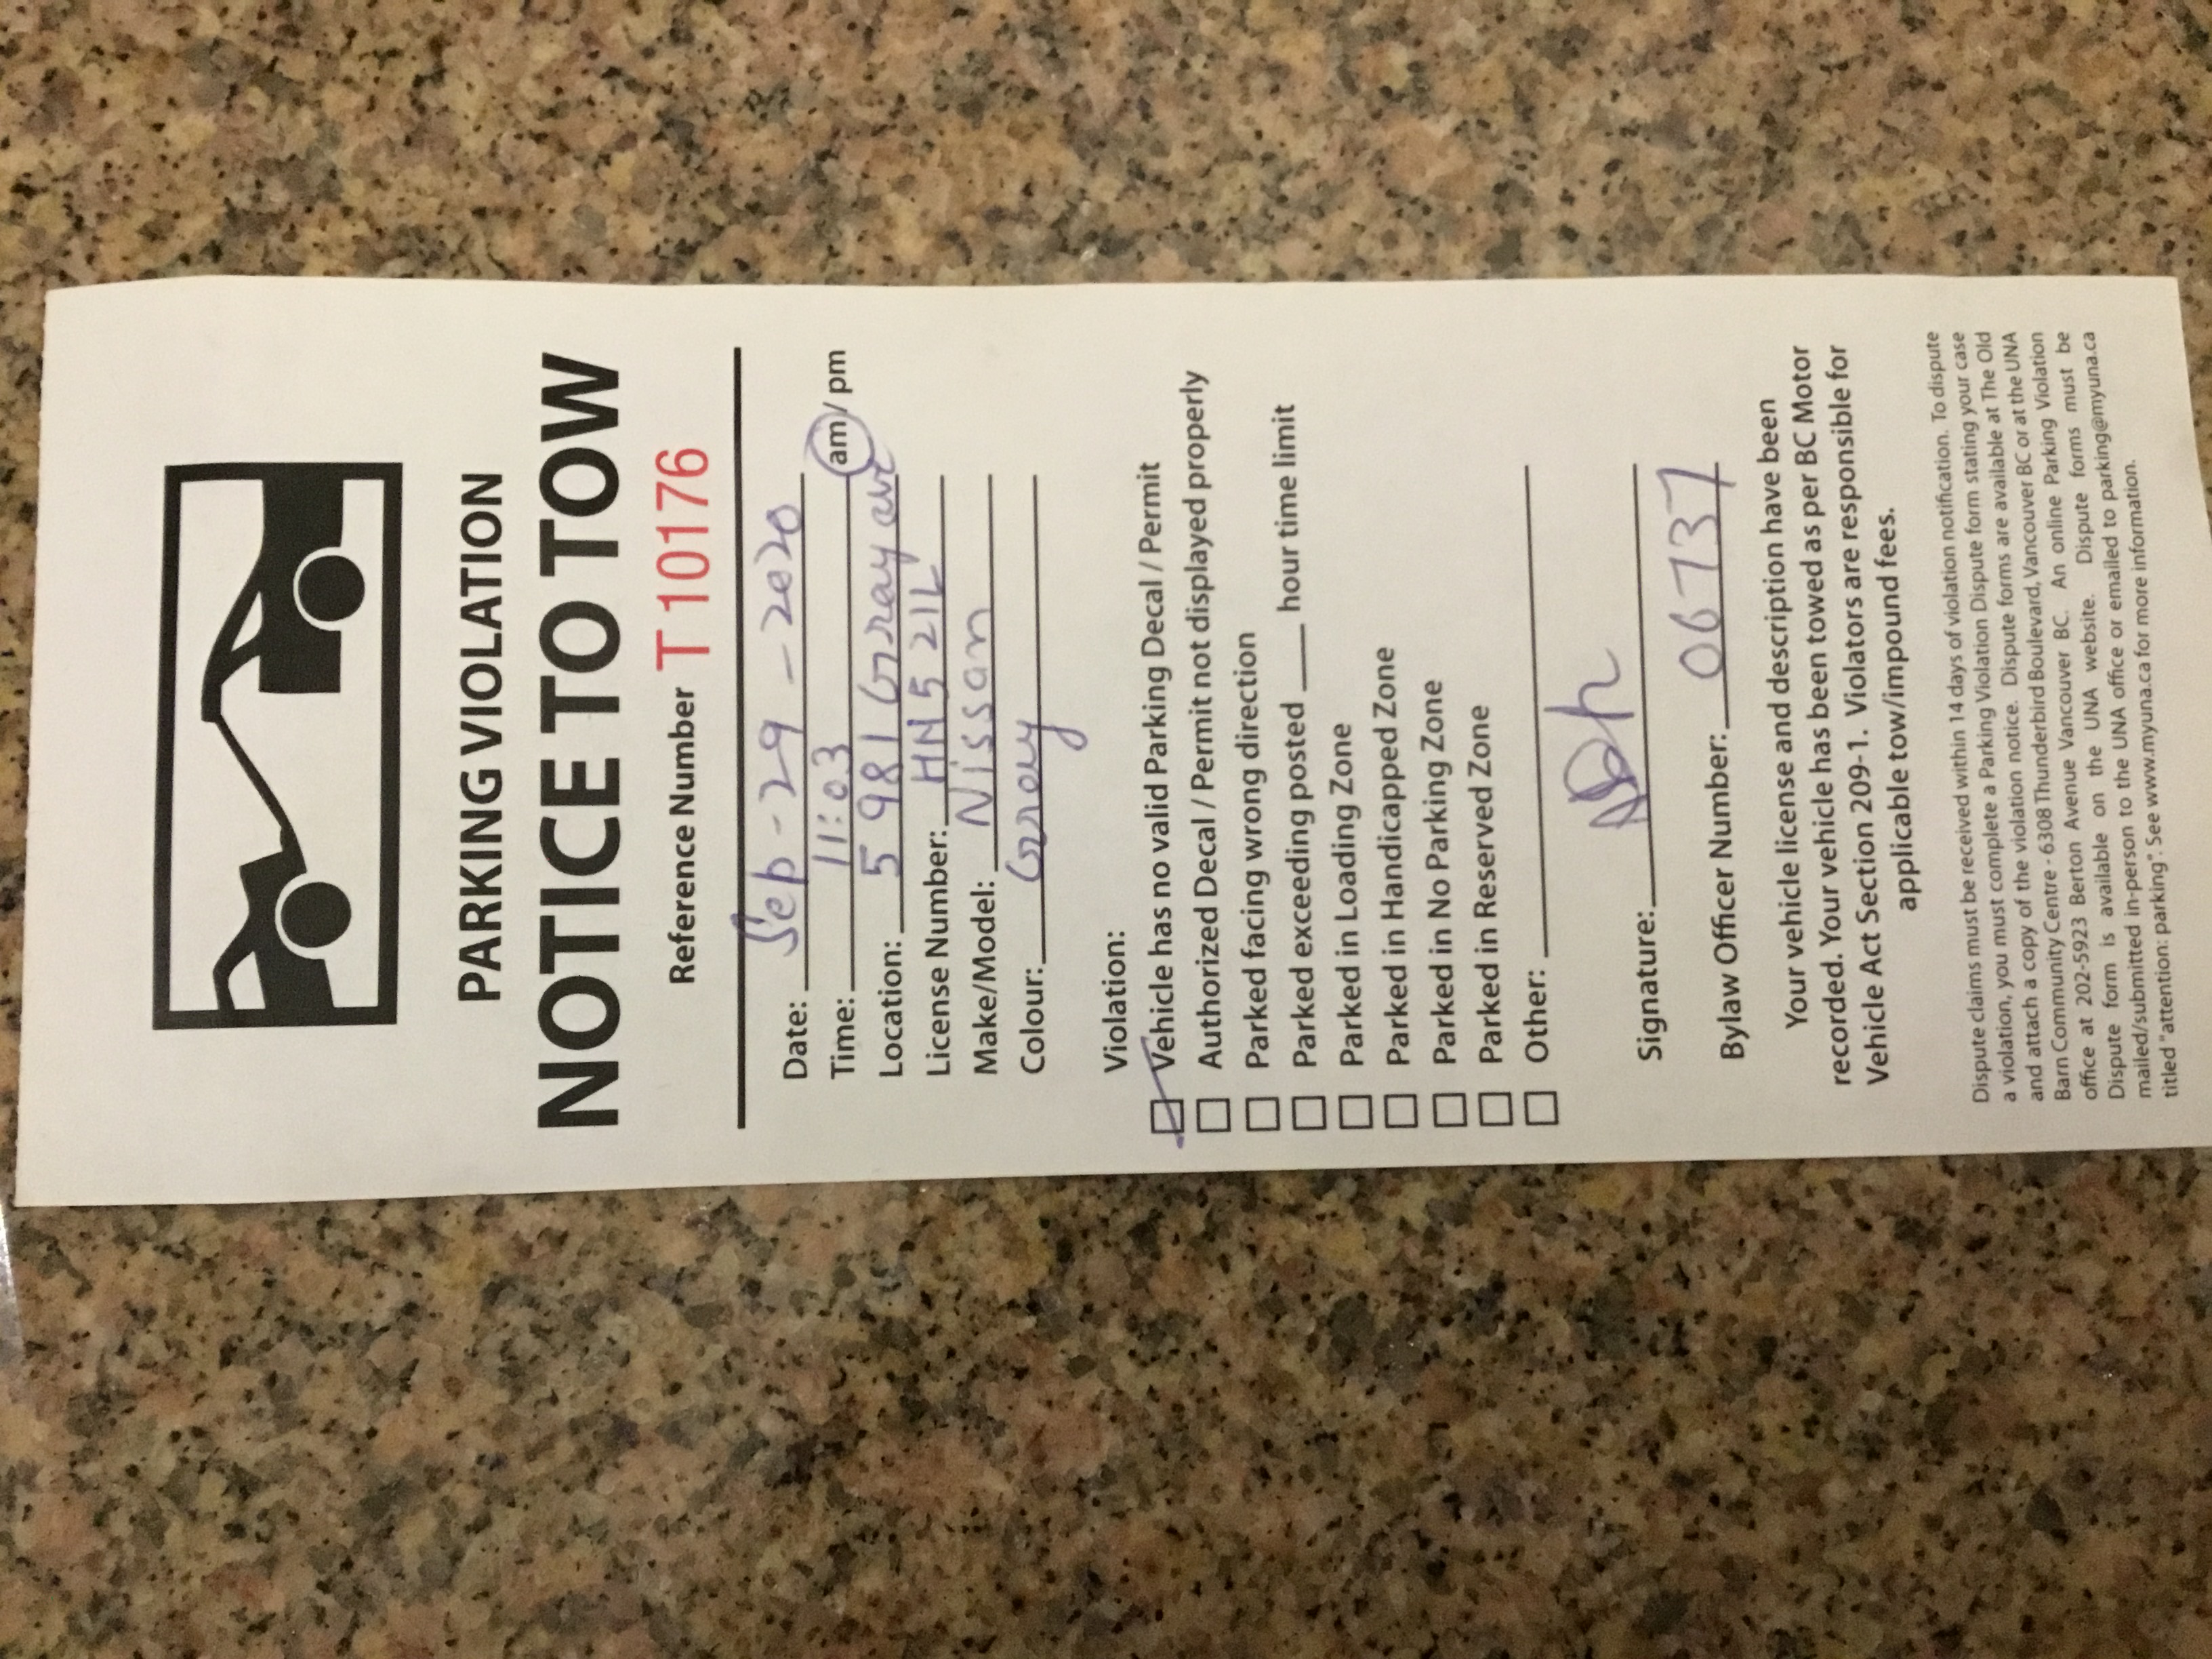 PARKING VIOLATION
NOTICE TO TOW
Reference Number T 10176
Date: Sep - 29 - 2020
Time: 11:03 am / pm
Location: 5981 Gray ave
License Number: HN521L
Make/Model: Nissan
Colour: Grey
Violation:
Vehicle has no valid Parking Decal / Permit
Authorized Decal / Permit not displayed properly
Parked facing wrong direction
Parked exceeding posted ___ hour time limit
Parked in Loading Zone
Parked in Handicapped Zone
Parked in No Parking Zone
Parked in Reserved Zone
Other:
Signature:
Bylaw Officer Number: 06737
Your vehicle license and description have been
recorded. Your vehicle has been towed as per BC Motor
Vehicle Act Section 209-1. Violators are responsible for
applicable tow/impound fees.
Dispute claims must be received within 14 days of violation notification. To dispute
a violation, you must complete a Parking Violation Dispute form stating your case
and attach a copy of the violation notice. Dispute forms are available at The Old
Barn Community Centre - 6308 Thunderbird Boulevard, Vancouver BC or at the UNA
office at 202-5923 Berton Avenue Vancouver BC. An online Parking Violation
Dispute form is available on the UNA website. Dispute forms must be
mailed/submitted in-person to the UNA office or emailed to parking@myuna.ca
titled "attention: parking". See www.myuna.ca for more information.